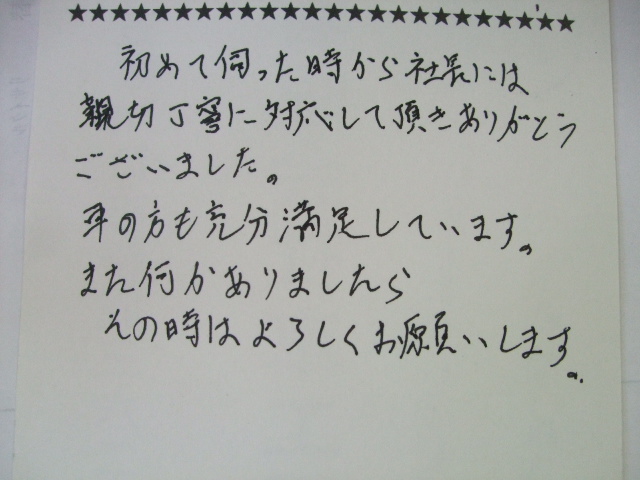 ★★★★★★★★★★★★★★★★★★★★★★★★★★★★
初めて伺った時から社長には
親切丁寧に対応して頂きありがとう
ございました。
車の方も充分満足しています。
また何かありましたら
その時はよろしくお願いします。